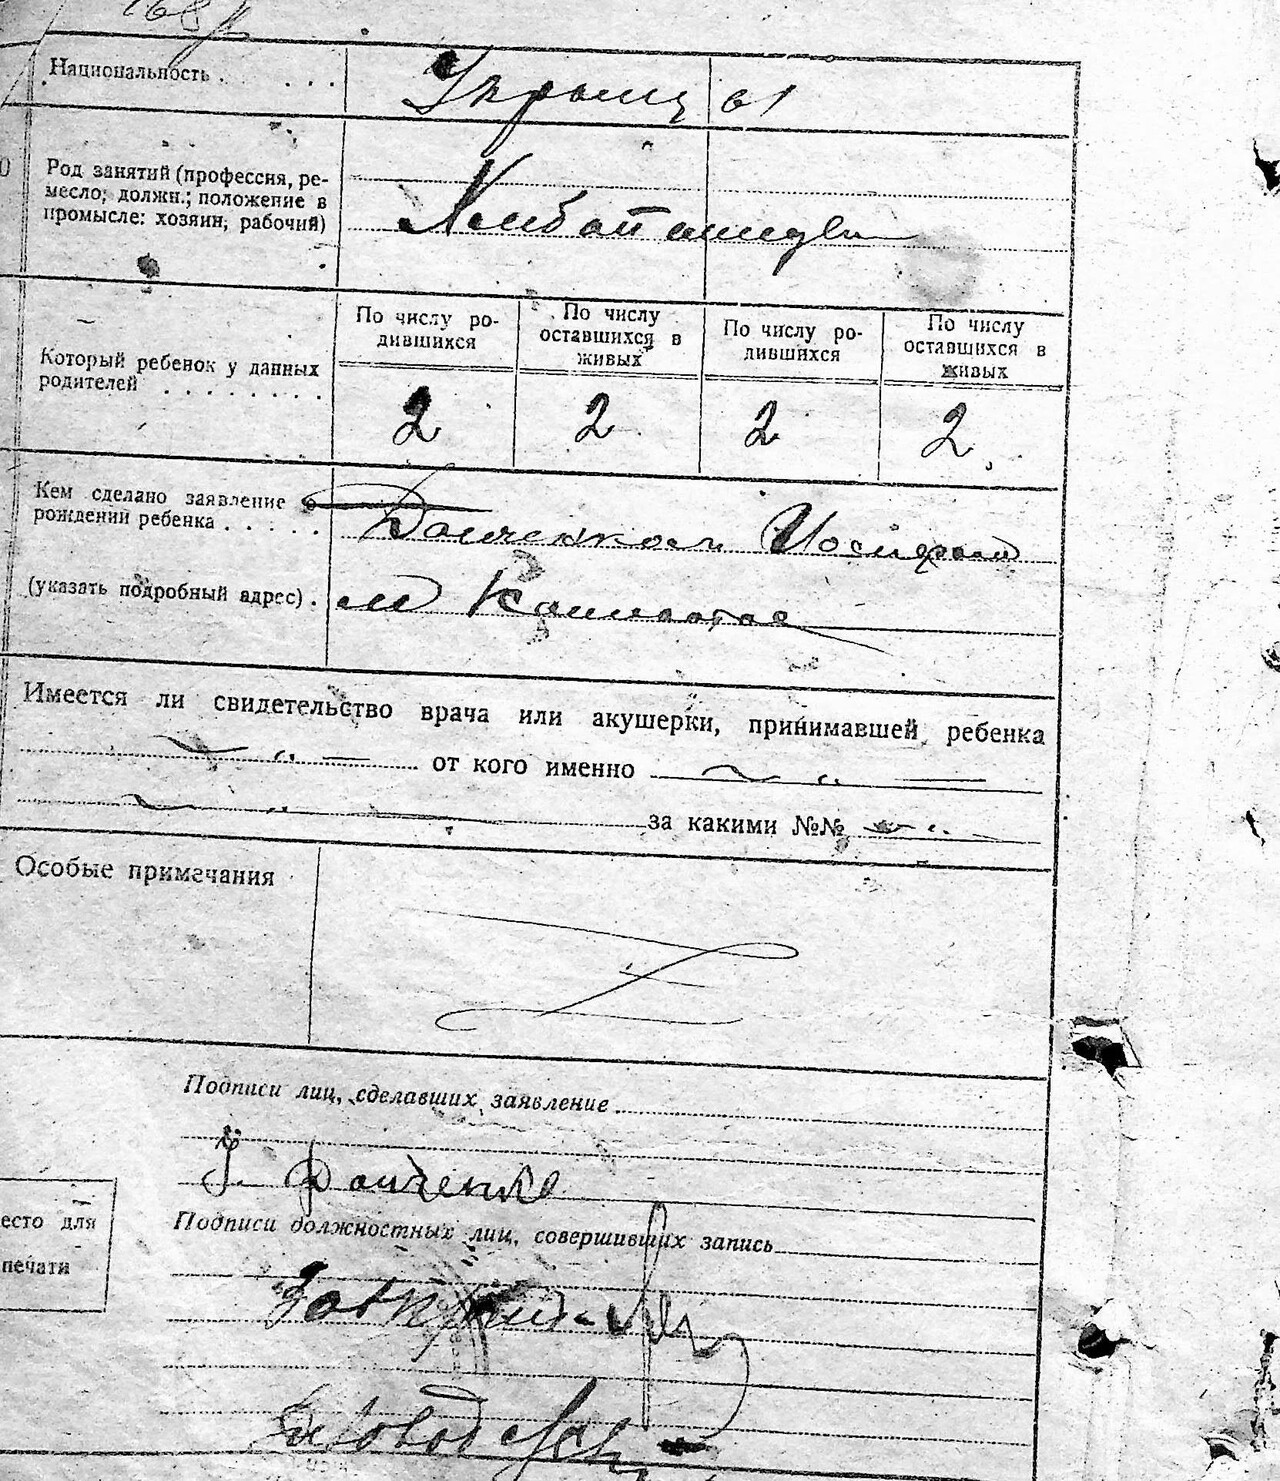 168
Национальность . . . . Украинцы
Род занятий (профессия, ре-
месло; должн.; положение в
промысле: хозяин, рабочий)
Хлебопашцы
По числу ро-
дившихся
По числу
оставшихся в
живых
По числу ро-
дившихся
По числу
оставшихся в
живых
Который ребенок у данных
родителей . . . . . . . .
2 2 2 2
Кем сделано заявление о
рождении ребенка . . . . .
Данченком Иосифом
(указать подробный адрес) .
м
Имеется ли свидетельство врача или акушерки, принимавшей ребенка
— " — от кого именно — " —
— " — за какими №№ — " —
Особые примечания
Подписи лиц, сделавших заявление
Й. Данченко
Подписи должностных лиц, совершивших запись
есто для
печати
Деловод